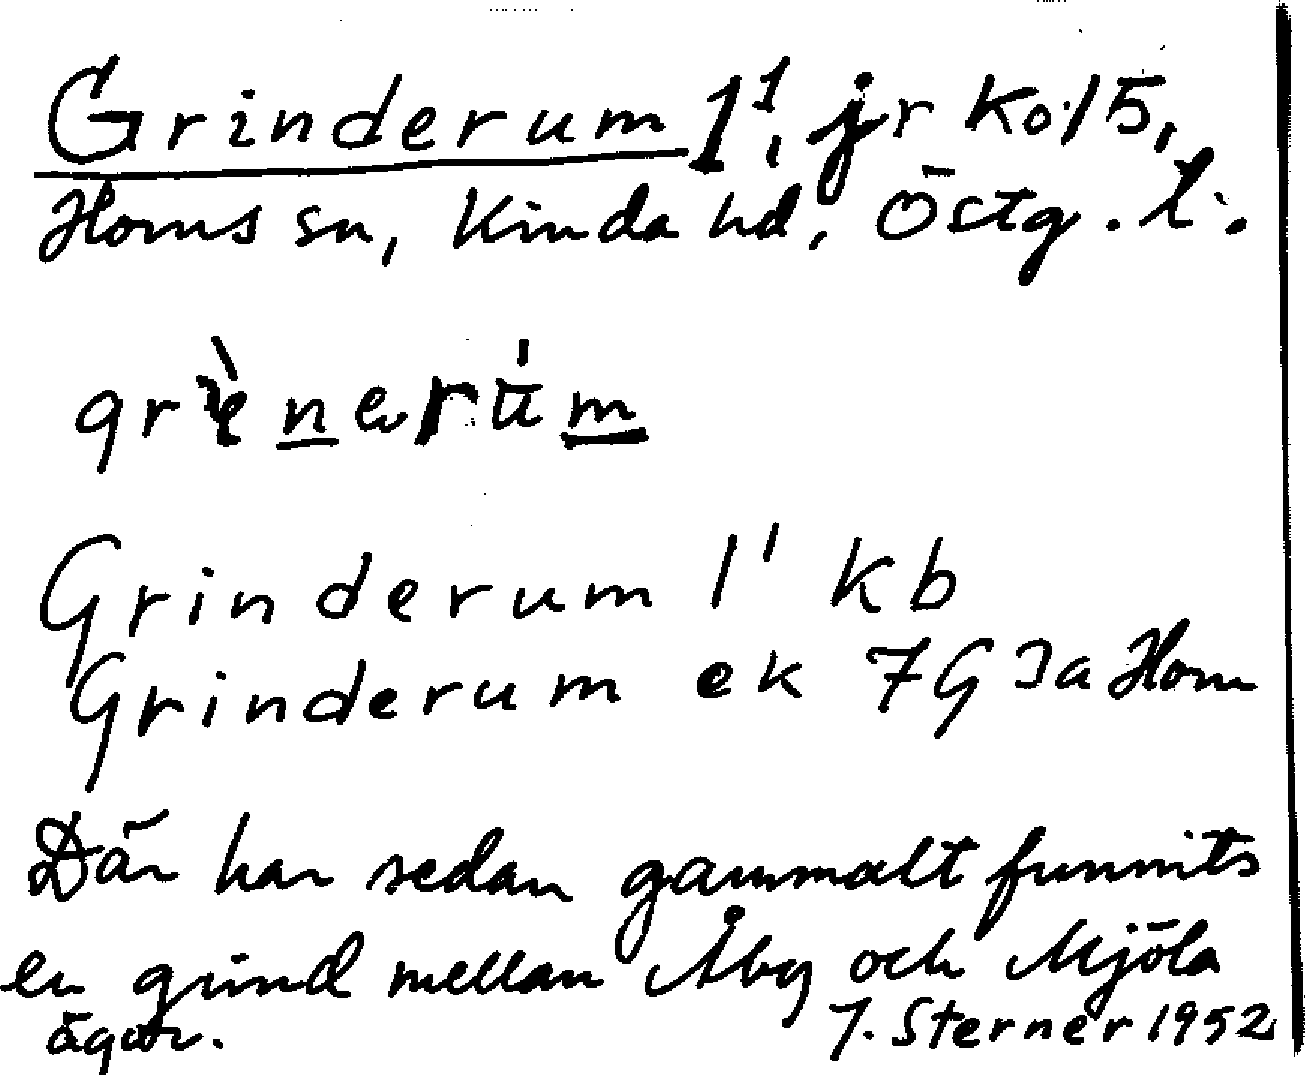 Grinderum 1¹, jr Ko 15,
Horns sn, Kinda hd, Östg. l.
Grinderum 1¹ kb
Grinderum ek 7G Ja Horn
Där har sedan gammalt funnits
en grind mellan Åby och Mjöla
ägor.
J. Sterner 1952